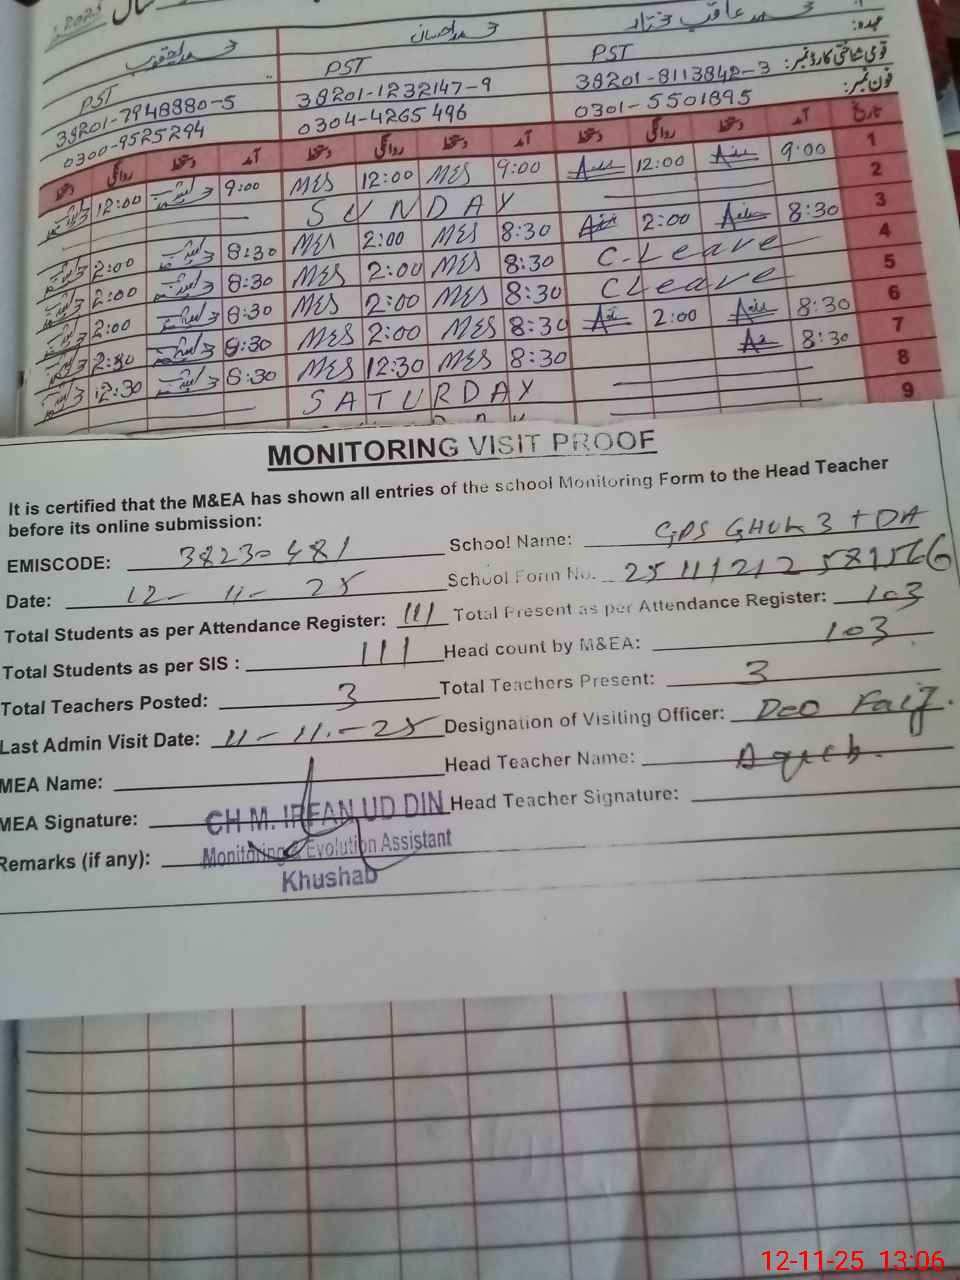 2025
محمد یعقوب محمد احسان محمد عاقب
عہدہ:
PST PST PST
قومی شناختی کارڈ نمبر:
38201-7948880-5 38201-1232147-9 38201-8113842-3
فون نمبر:
0300-9525294 0304-4265496 0301-5501895
دستخط روانگی دستخط آمد دستخط روانگی دستخط آمد دستخط روانگی دستخط آمد تاریخ
12:00 9:00 MES 12:00 MES 9:00 12:00 9:00 1
SUNDAY 2
2:00 8:30 MES 2:00 MES 8:30 2:00 8:30 3
2:00 8:30 MES 2:00 MES 8:30 C-Leave 4
2:00 8:30 MES 2:00 MES 8:30 CLeave 5
8:30 MES 2:00 MES 8:30 2:00 8:30 6
12:30 8:30 MES 12:30 MES 8:30 8:30 7
SATURDAY 8
9
MONITORING VISIT PROOF
It is certified that the M&EA has shown all entries of the school Monitoring Form to the Head Teacher
before its online submission:
EMISCODE: 38230481 School Name: GPS GHUK 3 TDA
Date: 12-11-25 School Form No. 2511121258 9566
Total Students as per Attendance Register: 111 Total Present as per Attendance Register: 103
Total Students as per SIS : 111 Head count by M&EA: 103
Total Teachers Posted: 3 Total Teachers Present: 3
Last Admin Visit Date: 11-11-25 Designation of Visiting Officer: Deo Faiz.
MEA Name: Head Teacher Name: Aqeeb.
MEA Signature: CH M. IRFAN UD DIN Head Teacher Signature:
Remarks (if any): Monitoring & Evolution Assistant
Khushab
12-11-25 13:06